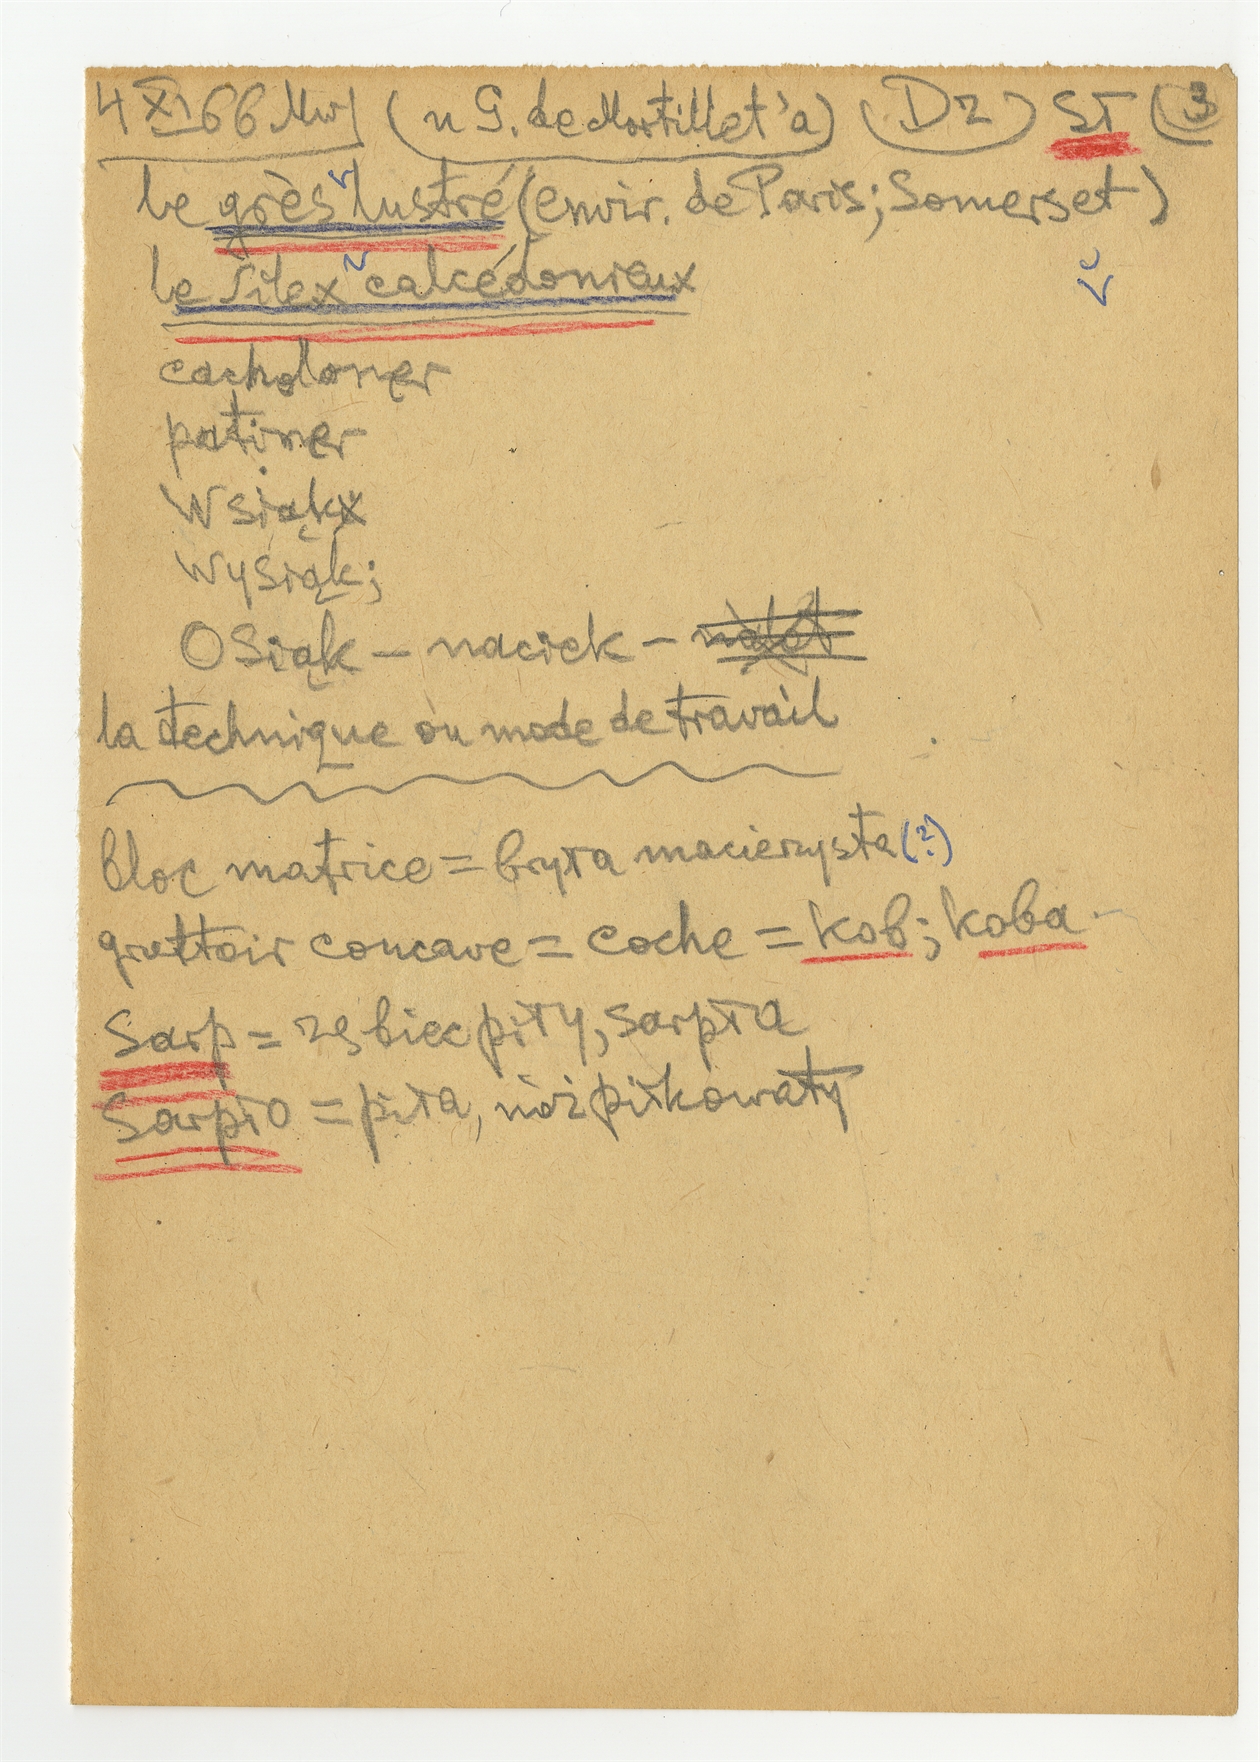 4 XI 66 Mwj (u G. de Mortillet'a) (Dz) SŁ (3
le grès lustré (envir. de Paris; Somerset)
le silex calcédonieux
cacholoner
patiner
Wsiąk
Wysiąk;
Osiąk – naciek – nalot
la technique ou mode de travail
bloc matrice = bryła macierzysta (?)
grattoir concave = coche = kob; koba
Sarp = ząbiec piły, sarpła
Sarpło = piła, nóż piłkowaty